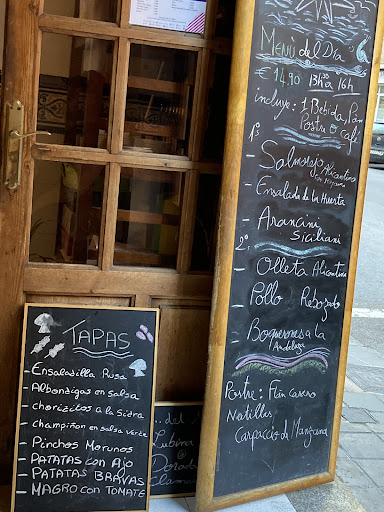 Menú del Día
€ 14,90 13h30 16h
incluye: 1 Bebida, Pan
Postre o café
1º
- Salmorejo Alicantino
- Ensalada de la Huerta
- Arancini
Siciliani
2º
- Olleta Alicantina
- Pollo Rebozado
- Boquerones a la
Andaluza
Postre: Flan Casero
Natillas
Carpaccio de Manzana
TAPAS
- Ensaladilla Rusa
- Albondigas en salsa
- chorizitos a la Sidra
- champiñon en salsa Verde
- Pinchos Morunos
- PATATAS con Ajo
- PATATAS BRAVAS
- MAGRO con TOMATE
Lubina
o
Dorada